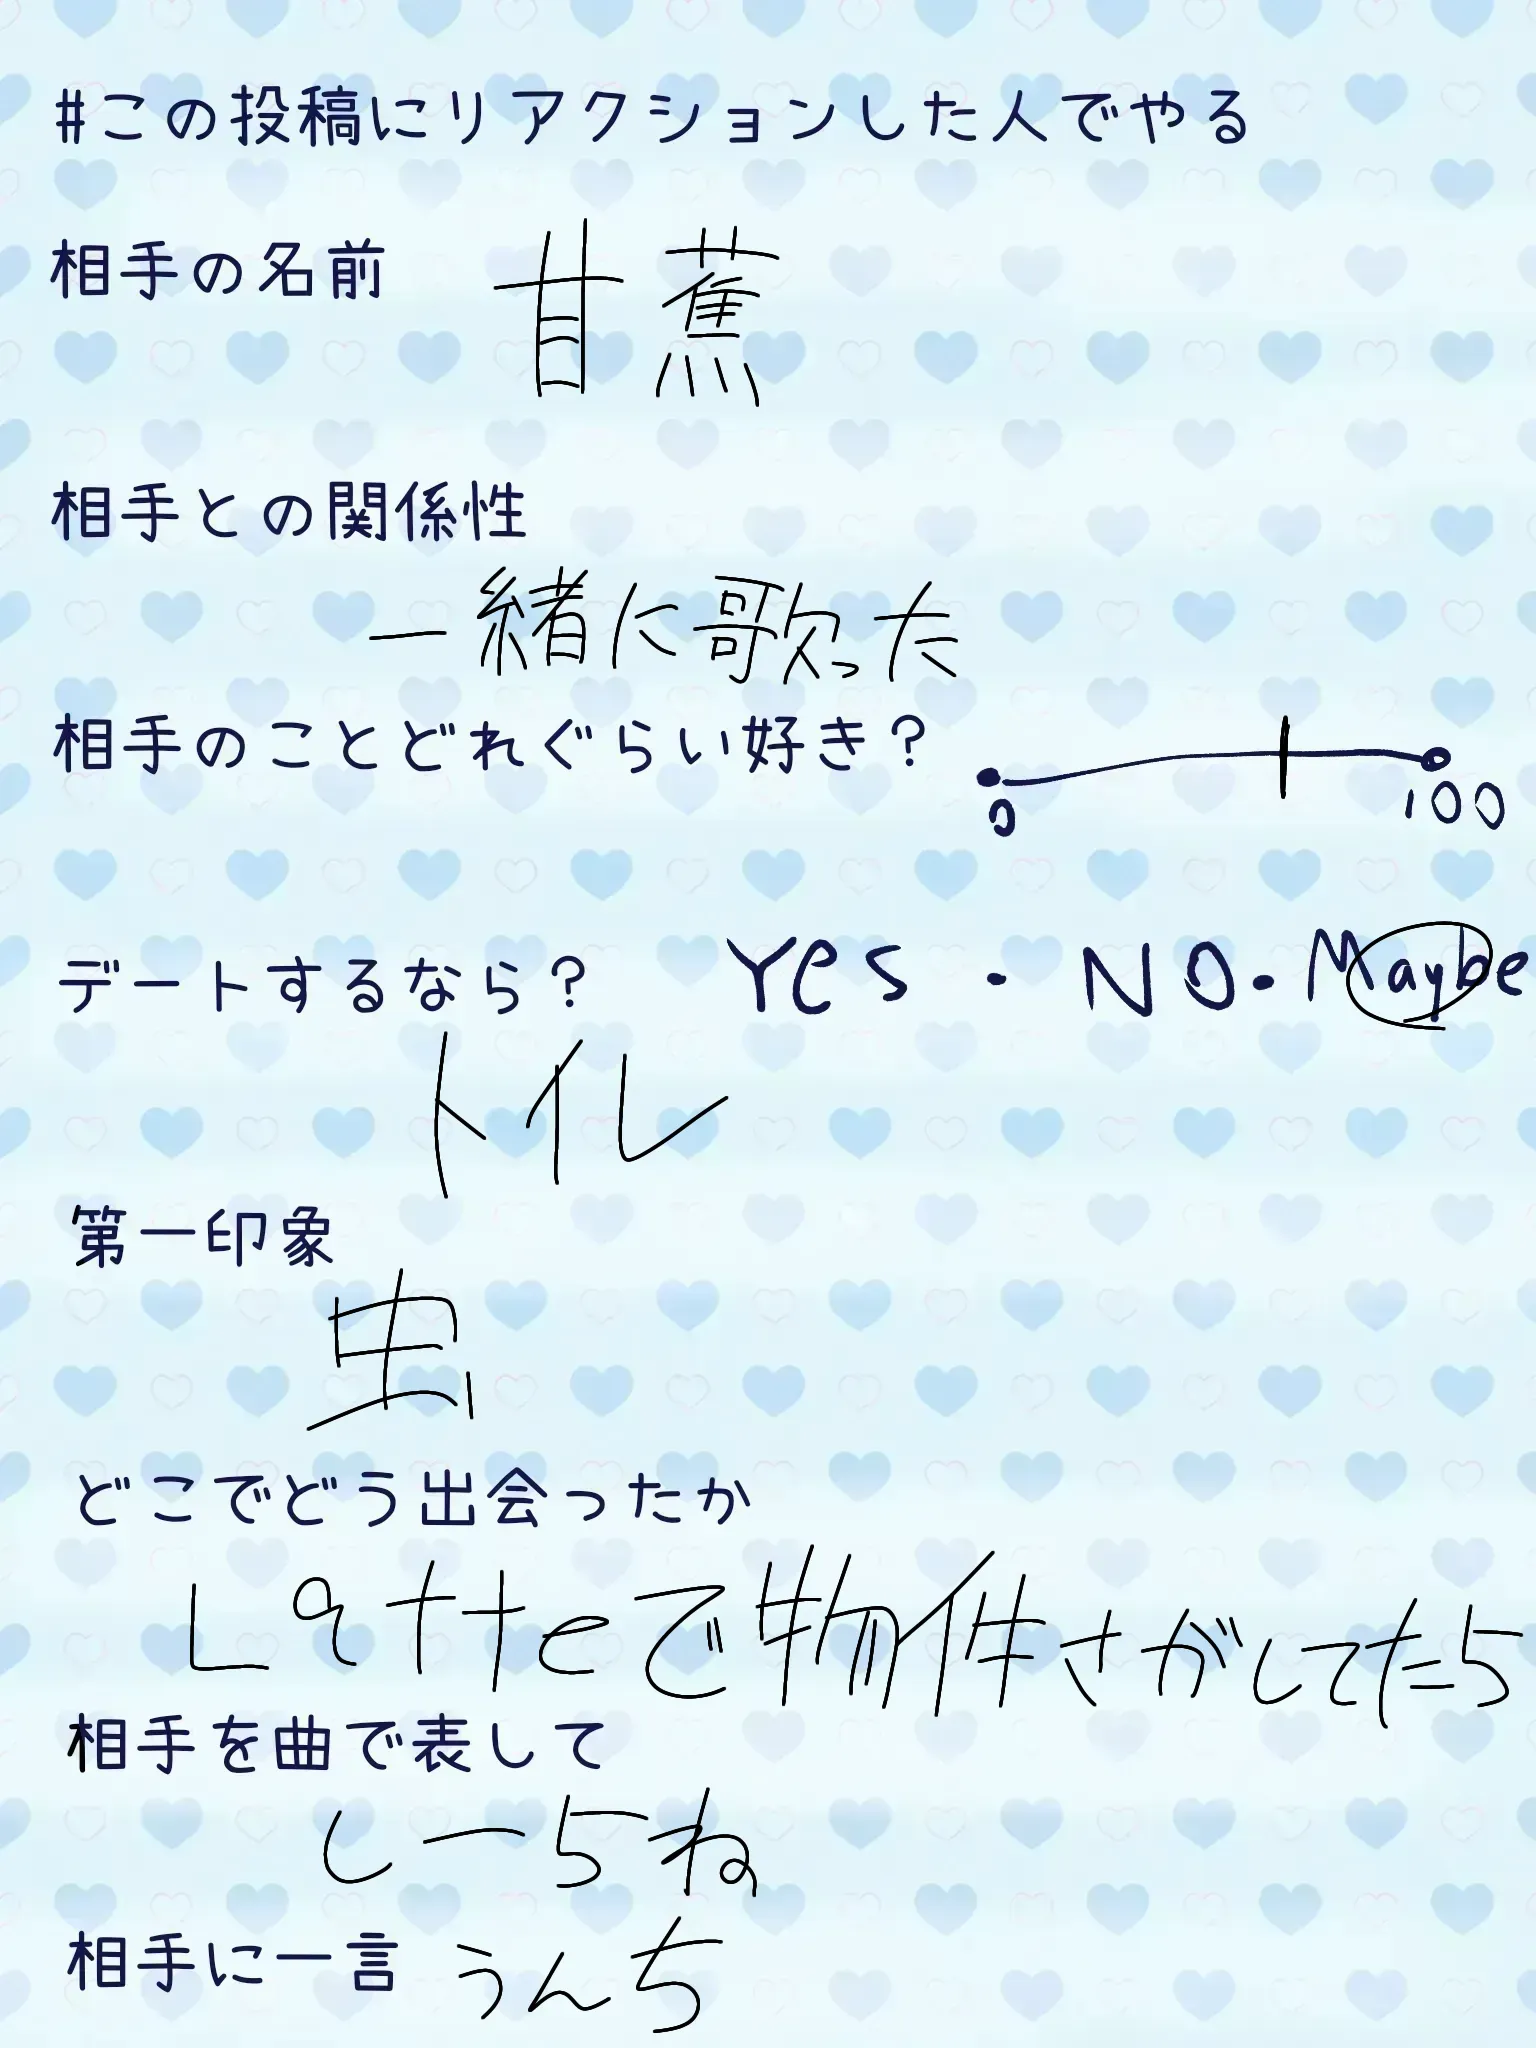 #この投稿にリアクションした人でやる
相手の名前 甘蕉
相手との関係性
一緒に歌った
相手のことどれぐらい好き?
0 100
デートするなら? Yes・NO・Maybe
トイレ
第一印象
虫
どこでどう出会ったか
Latteで物件さがしてたら
相手を曲で表して
しーらね
相手に一言 うんち